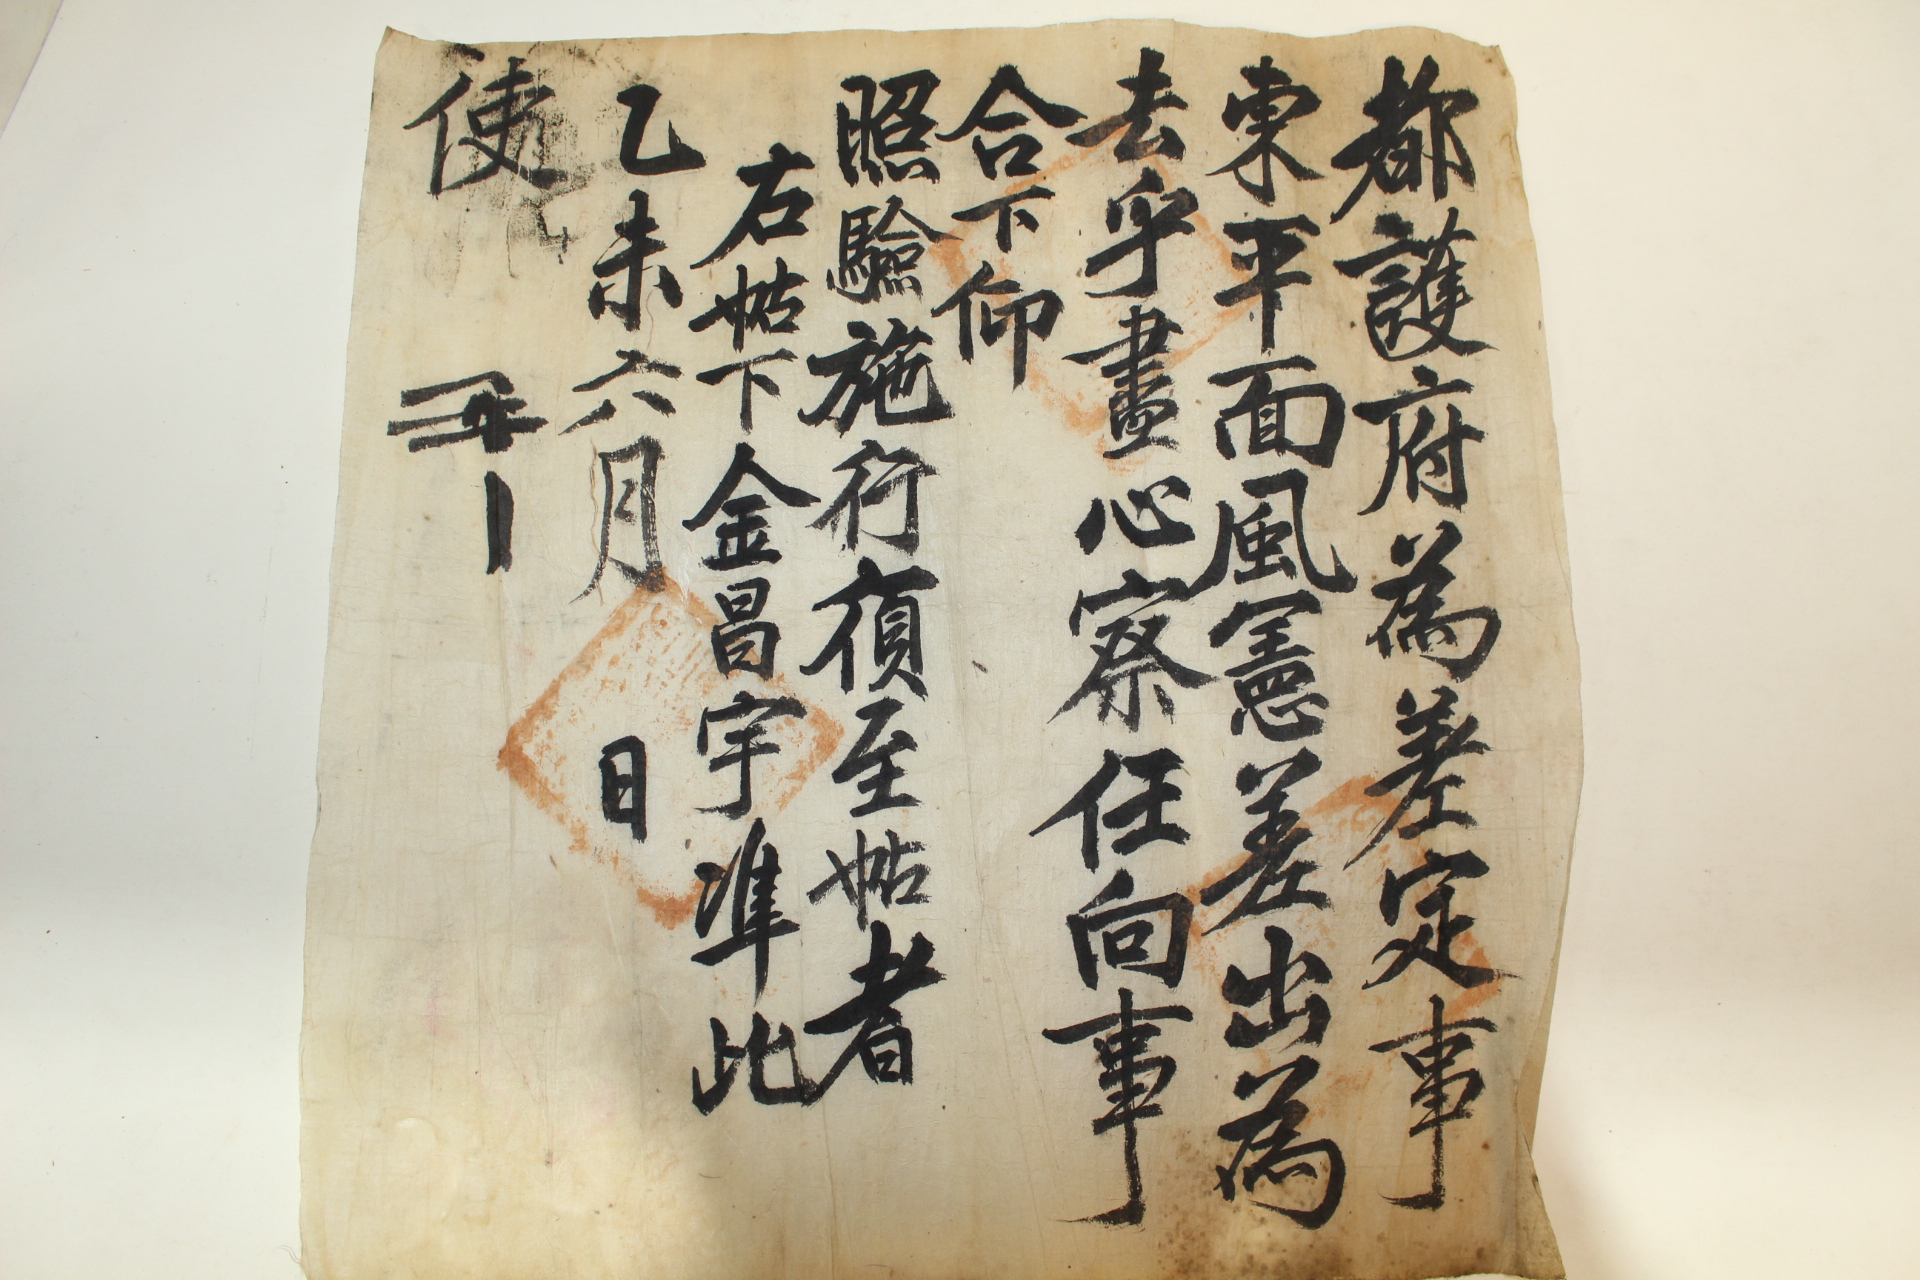 都護府為差定事
東平面風憲差出為
去乎盡心察任向事
合下仰
照驗施行須至帖者
右帖下金昌宇準此
乙未六月　日
使